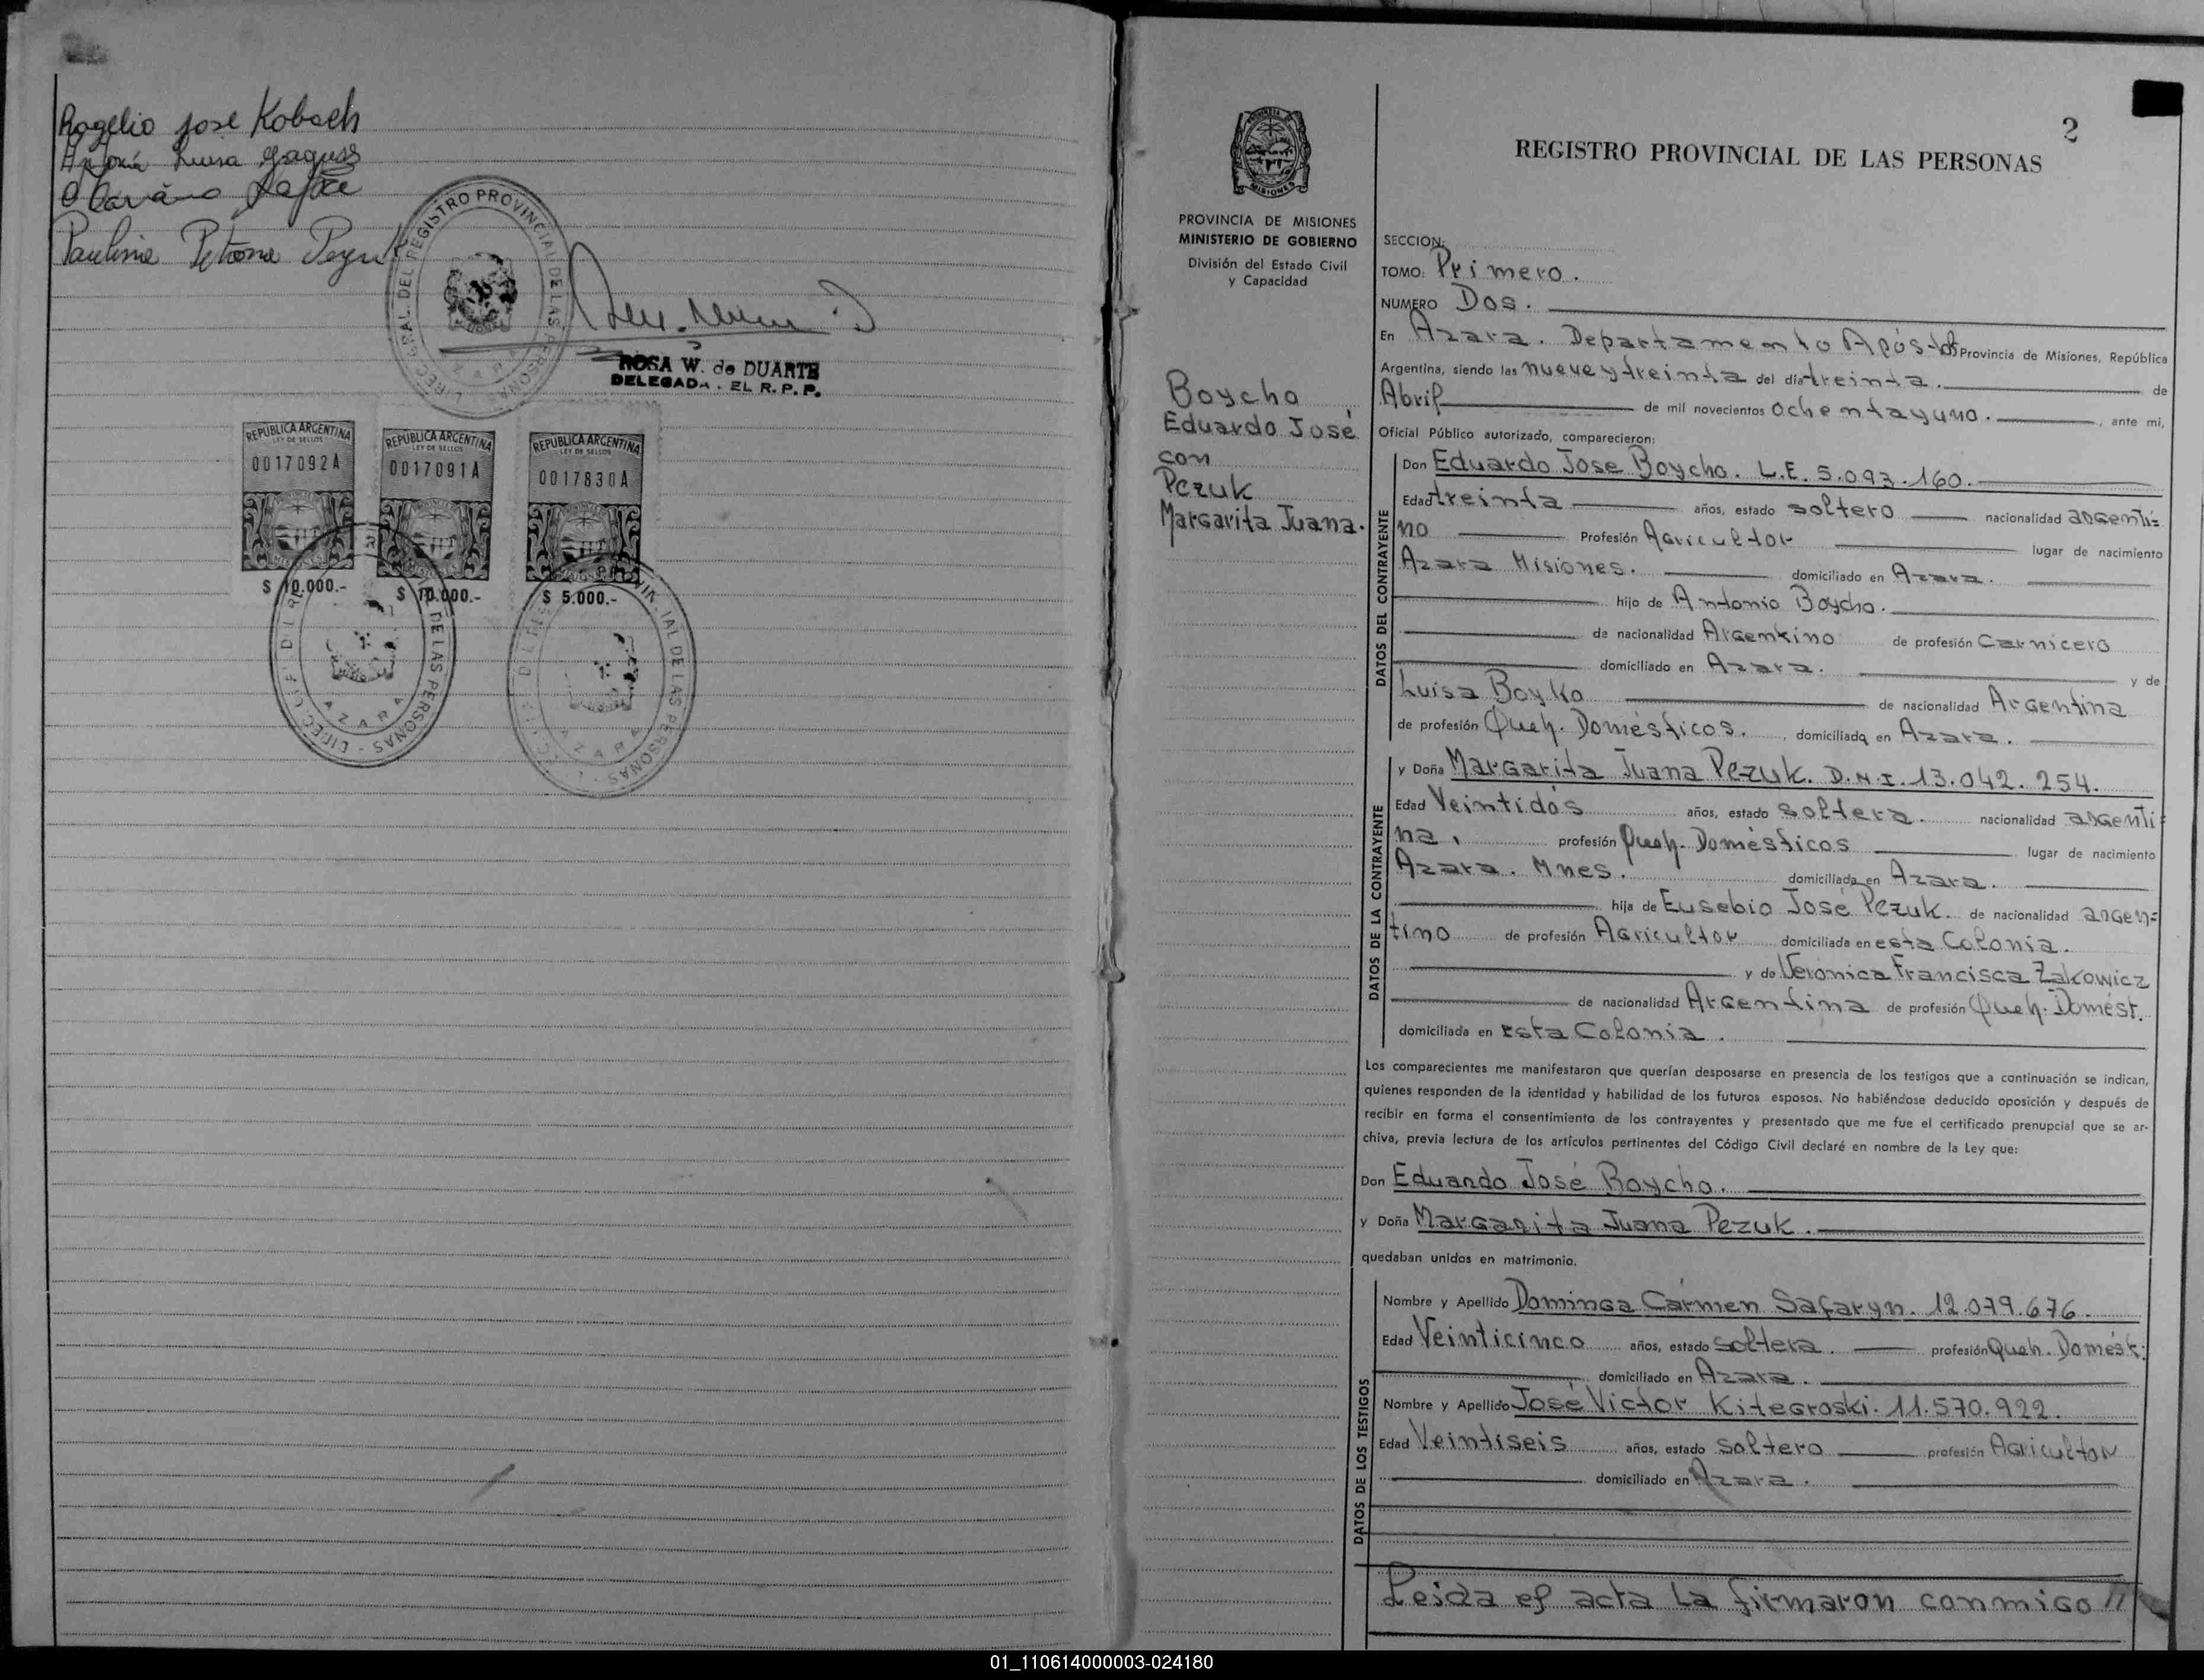 Rogelio José Kobach
Antonia Luisa
Paulina Petrona
DIREC. GRAL. DEL REGISTRO PROVINCIAL DE LAS PERSONAS
AZARA
ROSA W. de DUARTE
DELEGADA. EL R. P. P.
REPUBLICA ARGENTINA
LEY DE SELLOS
0017092A
$ 10.000.-
REPUBLICA ARGENTINA
LEY DE SELLOS
0017091A
$ 10.000.-
REPUBLICA ARGENTINA
LEY DE SELLOS
0017830A
$ 5.000.-
DE LAS PERSONAS
AZARA
DE LAS PERSONAS
AZARA
PROVINCIA DE MISIONES
MINISTERIO DE GOBIERNO
División del Estado Civil
y Capacidad
Boycho
Eduardo José
con
Pezuk
Margarita Juana.
2
REGISTRO PROVINCIAL DE LAS PERSONAS
SECCION:
TOMO: Primero.
NUMERO Dos.
En Azara. Departamento Apóstol Provincia de Misiones, República
Argentina, siendo las nueve y treinta del día treinta. de
Abril de mil novecientos ochentayuno. , ante mi,
Oficial Público autorizado, comparecieron:
DATOS DEL CONTRAYENTE
Don Eduardo Jose Boycho. L.E. 5.093.160.
Edad treinta años, estado soltero nacionalidad argenti=
no Profesión Agricultor lugar de nacimiento
Azara Misiones. domiciliado en Azara.
hijo de Antonio Boycho.
de nacionalidad Argentino de profesión Carnicero
domiciliado en Azara. y de
Luisa Boyko de nacionalidad Argentina
de profesión Queh. Domésticos. , domiciliada en Azara.
DATOS DE LA CONTRAYENTE
y Doña Margarita Juana Pezuk. D.N.I. 13.042.254.
Edad Veintidós años, estado soltera. nacionalidad argenti=
na, profesión Queh. Domésticos lugar de nacimiento
Azara. Mnes. domiciliada en Azara.
hija de Eusebio José Pezuk. de nacionalidad argen=
tino de profesión Agricultor domiciliada en esta Colonia.
y de Verónica Francisca Zakowicz
de nacionalidad Argentina de profesión Queh. Domést.
domiciliada en Esta Colonia.
Los comparecientes me manifestaron que querían desposarse en presencia de los testigos que a continuación se indican,
quienes responden de la identidad y habilidad de los futuros esposos. No habiéndose deducido oposición y después de
recibir en forma el consentimiento de los contrayentes y presentado que me fue el certificado prenupcial que se ar-
chiva, previa lectura de los artículos pertinentes del Código Civil declaré en nombre de la Ley que:
Don Eduardo José Boycho.
y Doña Margarita Juana Pezuk.
quedaban unidos en matrimonio.
DATOS DE LOS TESTIGOS
Nombre y Apellido Dominga Cármen Safaryn. 12.079.676.
Edad Veinticinco años, estado soltera. profesión Queh. Domést.
domiciliado en Azara.
Nombre y Apellido José Victor Kitegroski. 11.570.922.
Edad Veintiseis años, estado soltero profesión Agricultor
domiciliado en Azara.
Leida el acta la firmaron conmigo //
01_110614000003-024180